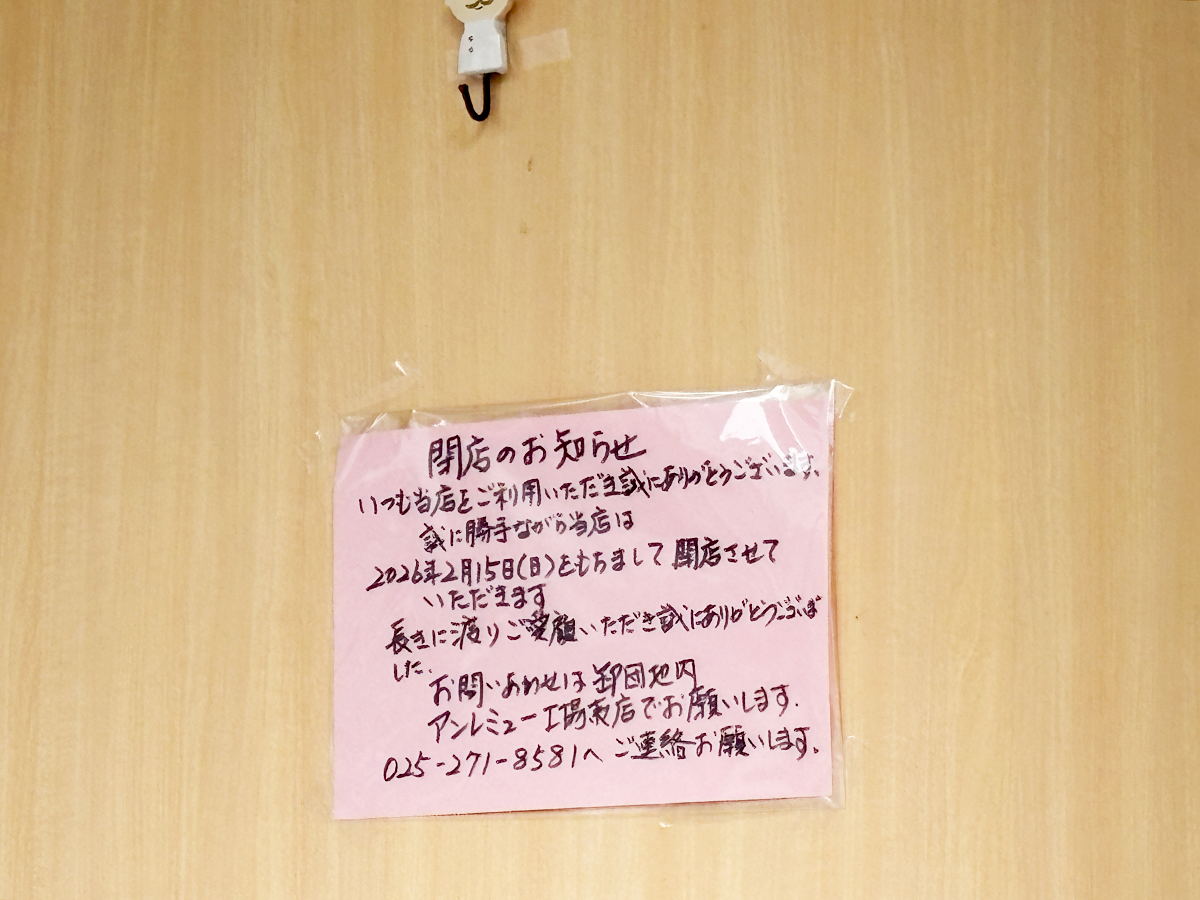 閉店のお知らせ
いつも当店をご利用いただき誠にありがとうございます。
誠に勝手ながら当店は
2026年2月15日(日)をもちまして閉店させて
いただきます
長きに渡りご愛顧いただき誠にありがとうございま
した。
お問いあわせは卸団地内
アンレミュー工場売店でお願いします.
025-271-8581へ ご連絡お願いします。